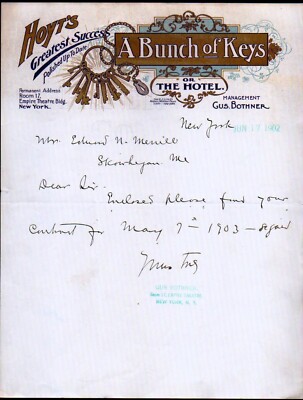 HOYT'S
Greatest Success
Polished Up To Date
A Bunch of Keys
OR
THE HOTEL.
Permanent Address
Room 17,
Empire Theatre Bldg.
New York.
MANAGEMENT
GUS. BOTHNER
New York JUN 17 1902
Mr. Edward N. Merrill
Skowhegan Me
Dear Sir.
Enclosed please find your
Contract for May 7th 1903 — signed
Yours Truly
GUS BOTHNER,
NEW YORK, N. Y.